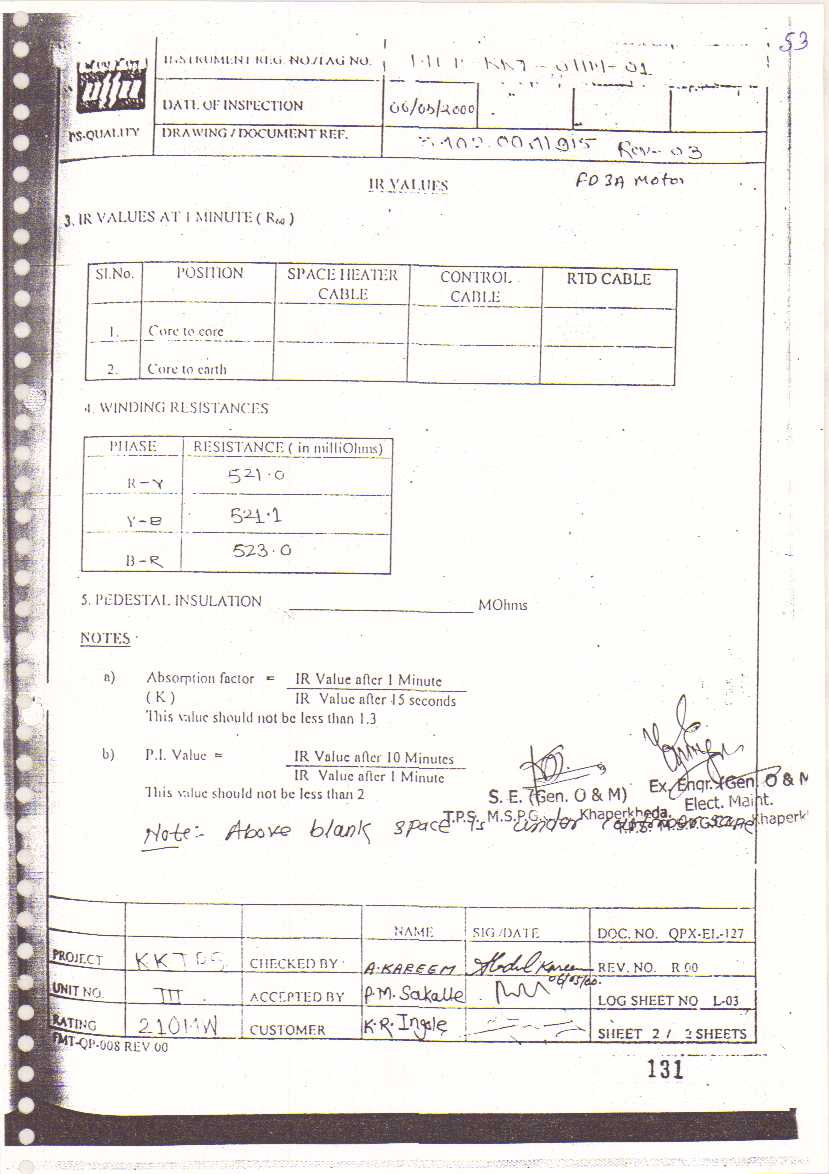 53
INSTRUMENT REG. NO/TAG NO.
DATE OF INSPECTION 06/05/2000
PS-QUALITY DRAWING / DOCUMENT REF. Rev-03
IR VALUES FD 3A Motor
3. IR VALUES AT 1 MINUTE ( R60 )
Sl.No. POSITION SPACE HEATER CABLE CONTROL CABLE RTD CABLE
1. Core to core
2. Core to earth
4. WINDING RESISTANCES
PHASE RESISTANCE ( in milliOhms)
R-Y 521.0
Y-B 521.1
B-R 523.0
5. PEDESTAL INSULATION MOhms
NOTES :
a) Absorption factor = IR Value after 1 Minute
( K ) IR Value after 15 seconds
This value should not be less than 1.3
b) P.I. Value = IR Value after 10 Minutes
IR Value after 1 Minute
This value should not be less than 2
S. E. (Gen. O & M)
T.P.S. M.S.P.G. Khaperkheda.
Ex. Engr. (Gen. O & M
Elect. Maint.
T.P.S. M.S.P.G. Khaperk
Note:- Above blank space is under customer scope
NAME SIG /DATE DOC. NO. QPX-EL-127
PROJECT KKTPS CHECKED BY A.KAREEM Abdul Kareem 06/05/00. REV. NO. R 00
UNIT NO. III ACCEPTED BY P.M. Sakalle LOG SHEET NO L-03
RATING 210MW CUSTOMER K.R. Ingole SHEET 2 / 2 SHEETS
FMT-QP-008 REV 00
131